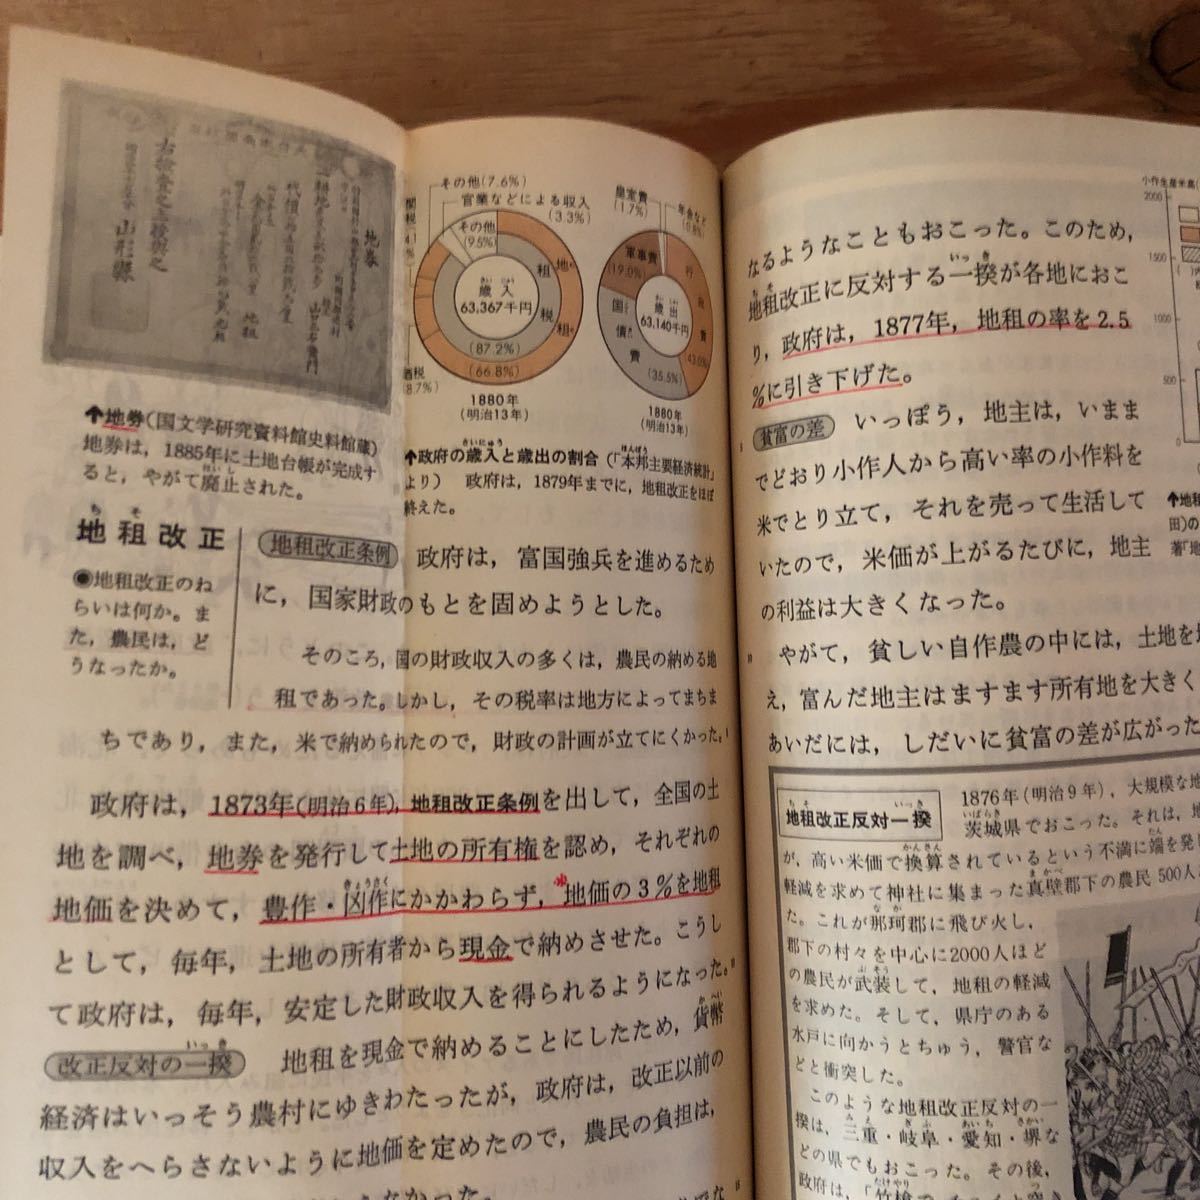 地券
山形縣
地租
その他(7.6%)
官業などによる収入
(3.3%)
その他
(9.5%)
地
租
税
租
歳入
さい にゅう
63,367千円
(87.2%)
(66.8%)
酒税
8.7%)
1880年
(明治13年)
皇室費
(1.7%)
年金など
(0.8%)
軍事費
(19.0%)
行
政
費
43.0%
国
債
費
(35.5%)
歳出
63,140千円
1880年
(明治13年)
↑地券(国文学研究資料館史料館蔵)
地券は，1885年に土地台帳が完成す
ると，やがて廃止された。
はいし
↑政府の歳入と歳出の割合(「本邦主要経済統計」
さいにゅう
ほんぽう
より)　政府は，1879年までに，地租改正をほぼ
終えた。
ち そ
地租改正
◉地租改正のね
らいは何か。ま
た，農民は，ど
うなったか。
地租改正条例　政府は，富国強兵を進めるため
に，国家財政のもとを固めようとした。
そのころ，国の財政収入の多くは，農民の納める地
租であった。しかし，その税率は地方によってまちま
ちであり，また，米で納められたので，財政の計画が立てにくかった。
政府は，1873年(明治6年)，地租改正条例を出して，全国の土
地を調べ，地券を発行して土地の所有権を認め，それぞれの
地価を決めて，豊作・凶作にかかわらず，*地価の3%を地租
きょうさく
として，毎年，土地の所有者から現金で納めさせた。こうし
て政府は，毎年，安定した財政収入を得られるようになった。
改正反対の一揆　地租を現金で納めることにしたため，貨幣
いっき
かへい
経済はいっそう農村にゆきわたったが，政府は，改正以前の
収入をへらさないように地価を定めたので，農民の負担は，
なるようなこともおこった。このため，
地租改正に反対する一揆が各地におこ
ちそ
いっき
り，政府は，1877年，地租の率を2.5
%に引き下げた。
貧富の差　いっぽう，地主は，いまま
でどおり小作人から高い率の小作料を
米でとり立て，それを売って生活して
いたので，米価が上がるたびに，地主
の利益は大きくなった。
やがて，貧しい自作農の中には，土地を
え，富んだ地主はますます所有地を大きく
あいだには，しだいに貧富の差が広がった
小作生産米高
2000
1500
1000
500
0
↑地租
田)の
著「地
地租改正反対一揆
ちそ
いっき
1876年(明治9年)，大規模な地
茨城県でおこった。それは，地
いばらき
が，高い米価で換算されているという不満に端を発し
かんさん
たん
軽減を求めて神社に集まった真壁郡下の農民500人
まかべ
た。これが那珂郡に飛び火し，
なか
郡下の村々を中心に2000人ほど
の農民が武装して，地租の軽減
ぶそう
を求めた。そして，県庁のある
水戸に向かうとちゅう，警官な
どと衝突した。
このような地租改正反対の一
揆は，三重・岐阜・愛知・堺な
みえ
ぎふ
あいち
さかい
どの県でもおこった。その後，
政府は，「竹槍で
たけやり